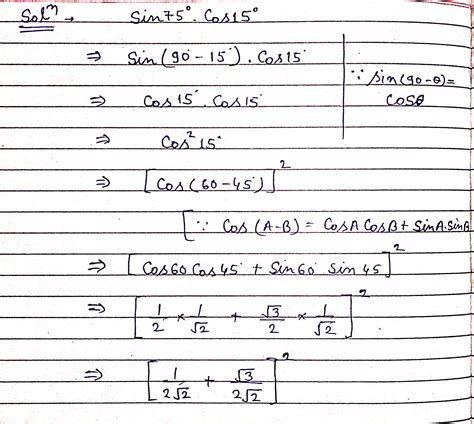 Solⁿ → Sin75°. Cos15°
⇒ Sin(90°-15°). Cos15°
∵ Sin(90-θ)=
Cosθ
⇒ Cos15°. Cos15°
⇒ Cos²15°
⇒ [Cos(60-45)]²
[∵ Cos(A-B) = CosA CosB + SinA.SinB
⇒ [Cos60 Cos45° + Sin60° Sin45]²
⇒ [1/2 × 1/√2 + √3/2 × 1/√2]²
⇒ [1/2√2 + √3/2√2]²